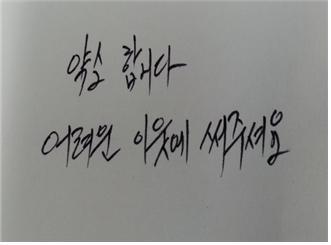 약소 합니다
어려운 이웃에 써주세요